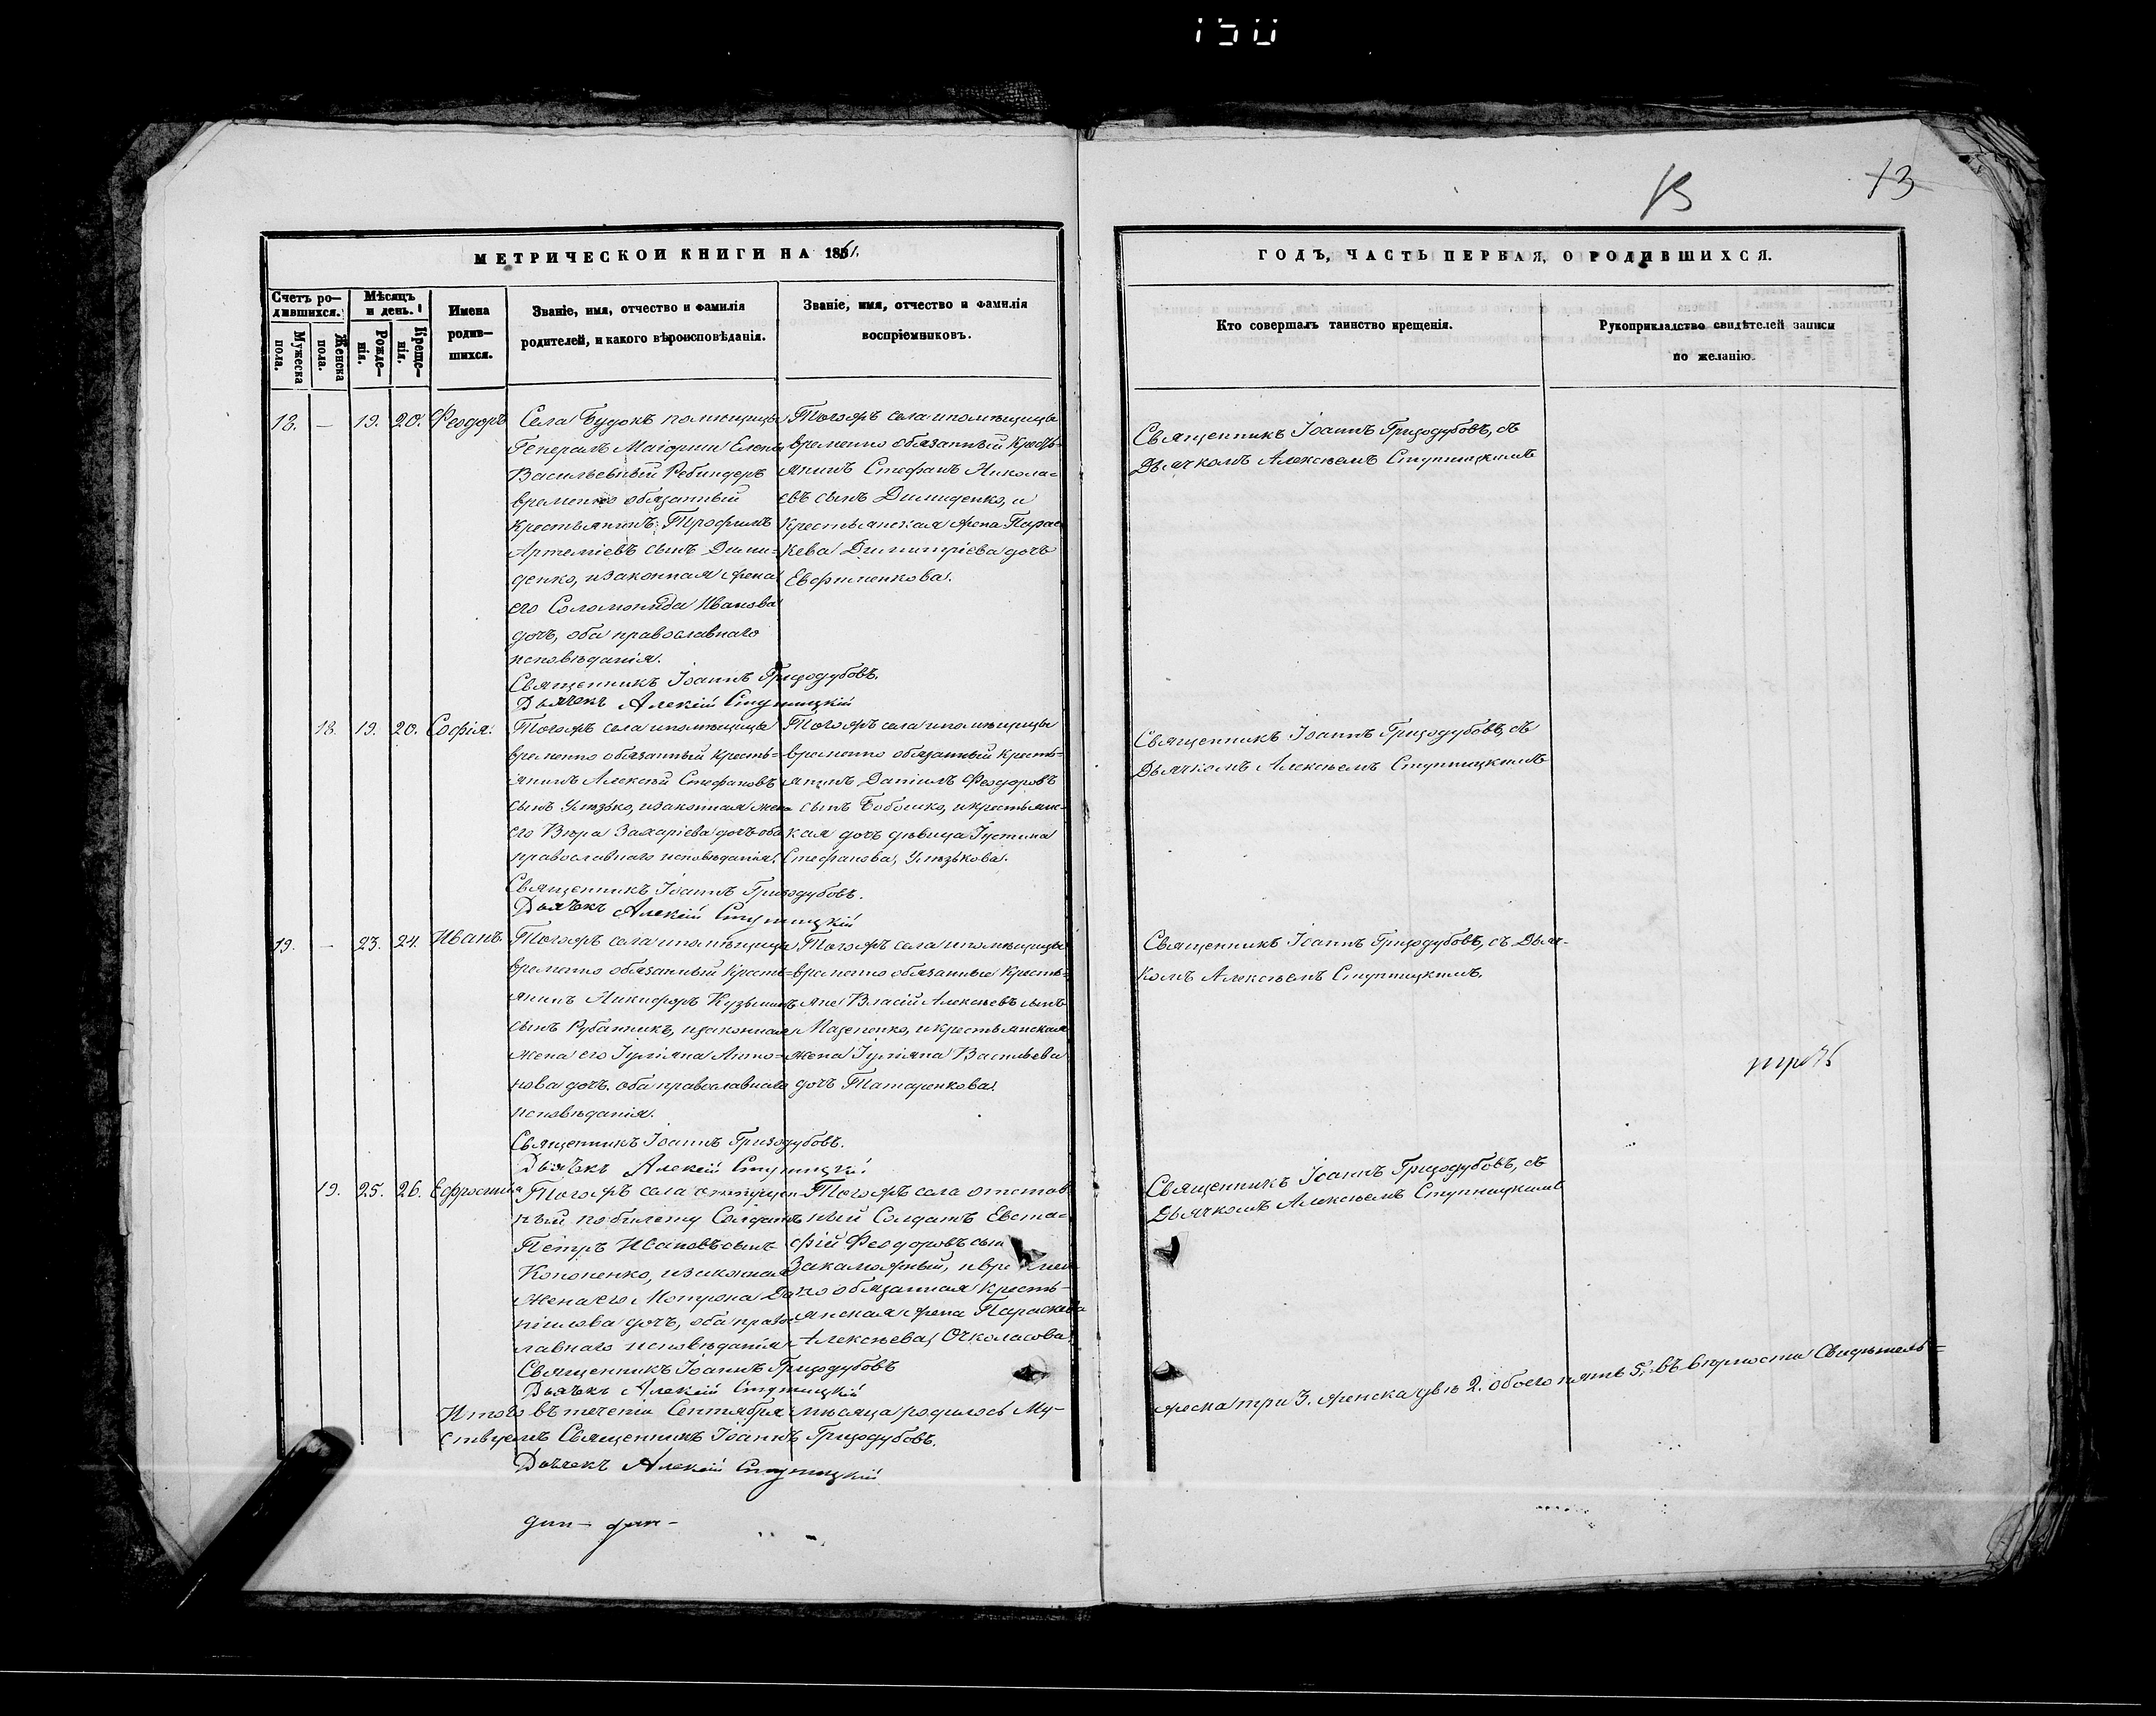 150
13
13
МЕТРИЧЕСКОЙ КНИГИ НА 1861.
ГОДЪ, ЧАСТЬ ПЕРВАЯ, О РОДИВШИХСЯ.
Счетъ ро-
дившихся.
Мужеска пола.
Женска пола.
Мѣсяцъ
и день.
Рожде-
нія.
Креще-
нія.
Имена
родив-
шихся.
Званіе, имя, отчество и фамилія
родителей, и какого вѣроисповѣданія.
Званіе, имя, отчество и фамилія
воспріемниковъ.
Кто совершалъ таинство крещенія.
Рукоприкладство свидѣтелей записи
по желанію.
18. — 19. 20. Феодоръ
Села Будокъ помѣщицы
Генералъ Маіорши Елены
Васильевный Ребиндеръ
временно обязанный
крестьянинъ Трофимъ
Артеміевъ сынъ Дими-
денко, и законная жена
его Соломонида Иванова
дочь, оба православнаго
исповѣданія.
Священникъ Іоаннъ Гризодубовъ.
Дьячекъ Алексій Ступницкій
Тогожъ села и помѣщицы
временно обязанный кресть-
янинъ Стефанъ Никола-
евъ сынъ Димиденко, и
крестьянская жена Парас
кева Димитріева дочь
Евфименкова.
Священникъ Іоаннъ Гризодубовъ, съ
Дьячкомъ Алексѣемъ Ступницкимъ
18. 19. 20. Софія.
Тогожъ села и помѣщицы
временно обязанный кресть-
янинъ Алексѣй Стефановъ
сынъ, и законная жена
его Вѣра Захаріева дочь оба
православнаго исповѣданія.
Священникъ Іоаннъ Гризодубовъ.
Дьячекъ Алексій Ступницкій
Тогожъ села и помѣщицы
временно обязанный кресть-
янинъ Даніилъ Феодоровъ
сынъ, и крестьянс-
кая дочь дѣвица Іустина
Стефанова,
Священникъ Іоаннъ Гризодубовъ, съ
Дьячкомъ Алексѣемъ Ступницкимъ
19. — 23. 24. Иванъ
Тогожъ села и помѣщицы
временно обязанный кресть-
янинъ Никифоръ Кузьминъ
сынъ Рубанникъ, и законная
жена его Іуліяна Анто-
нова дочь. оба православнаго
исповѣданія.
Священникъ Іоаннъ Гризодубовъ.
Дьячекъ Алексій Ступницкій
Тогожъ села и помѣщицы
временно обязанные кресть-
яне Власій Алексѣевъ сынъ
Мазепенко, и крестьянская
жена Іуліяна Васильева
дочь Татаренкова.
Священникъ Іоаннъ Гризодубовъ, съ Дьяч-
комъ Алексѣемъ Ступницкимъ.
19. 25. 26. Ефросинія
Тогожъ села отпущен
ный по билету Солдатъ
Петръ Ивановъ сынъ
Кононенко, и законная
жена его Мотрона Да
ніилова дочь, оба правос
лавнаго исповѣданія
Священникъ Іоаннъ Гризодубовъ
Дьячекъ Алексій Ступницкій
Тогожъ села отстав
ный Солдатъ Евста-
фій Феодоровъ сын
Закаможный, и времен
но обязанная кресть-
янская жена Параскева
Алексѣева,
Священникъ Іоаннъ Гризодубовъ, съ
Дьячкомъ Алексѣемъ Ступницкимъ
Итого въ теченіи Сентября мѣсяца родилось Му-
жеска три 3. женска двѣ 2. обоего пять 5. въ вѣрности Свидѣтель-
ствуемъ Священникъ Іоаннъ Гризодубовъ.
Дьячекъ Алексій Ступницкій